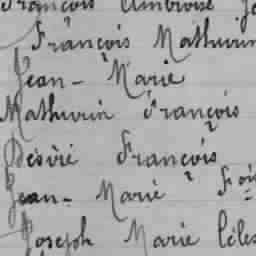 François Ambroise
François Mathurin
Jean-Marie
Mathurin François
Désiré François
Jean-Marie
Joseph Marie